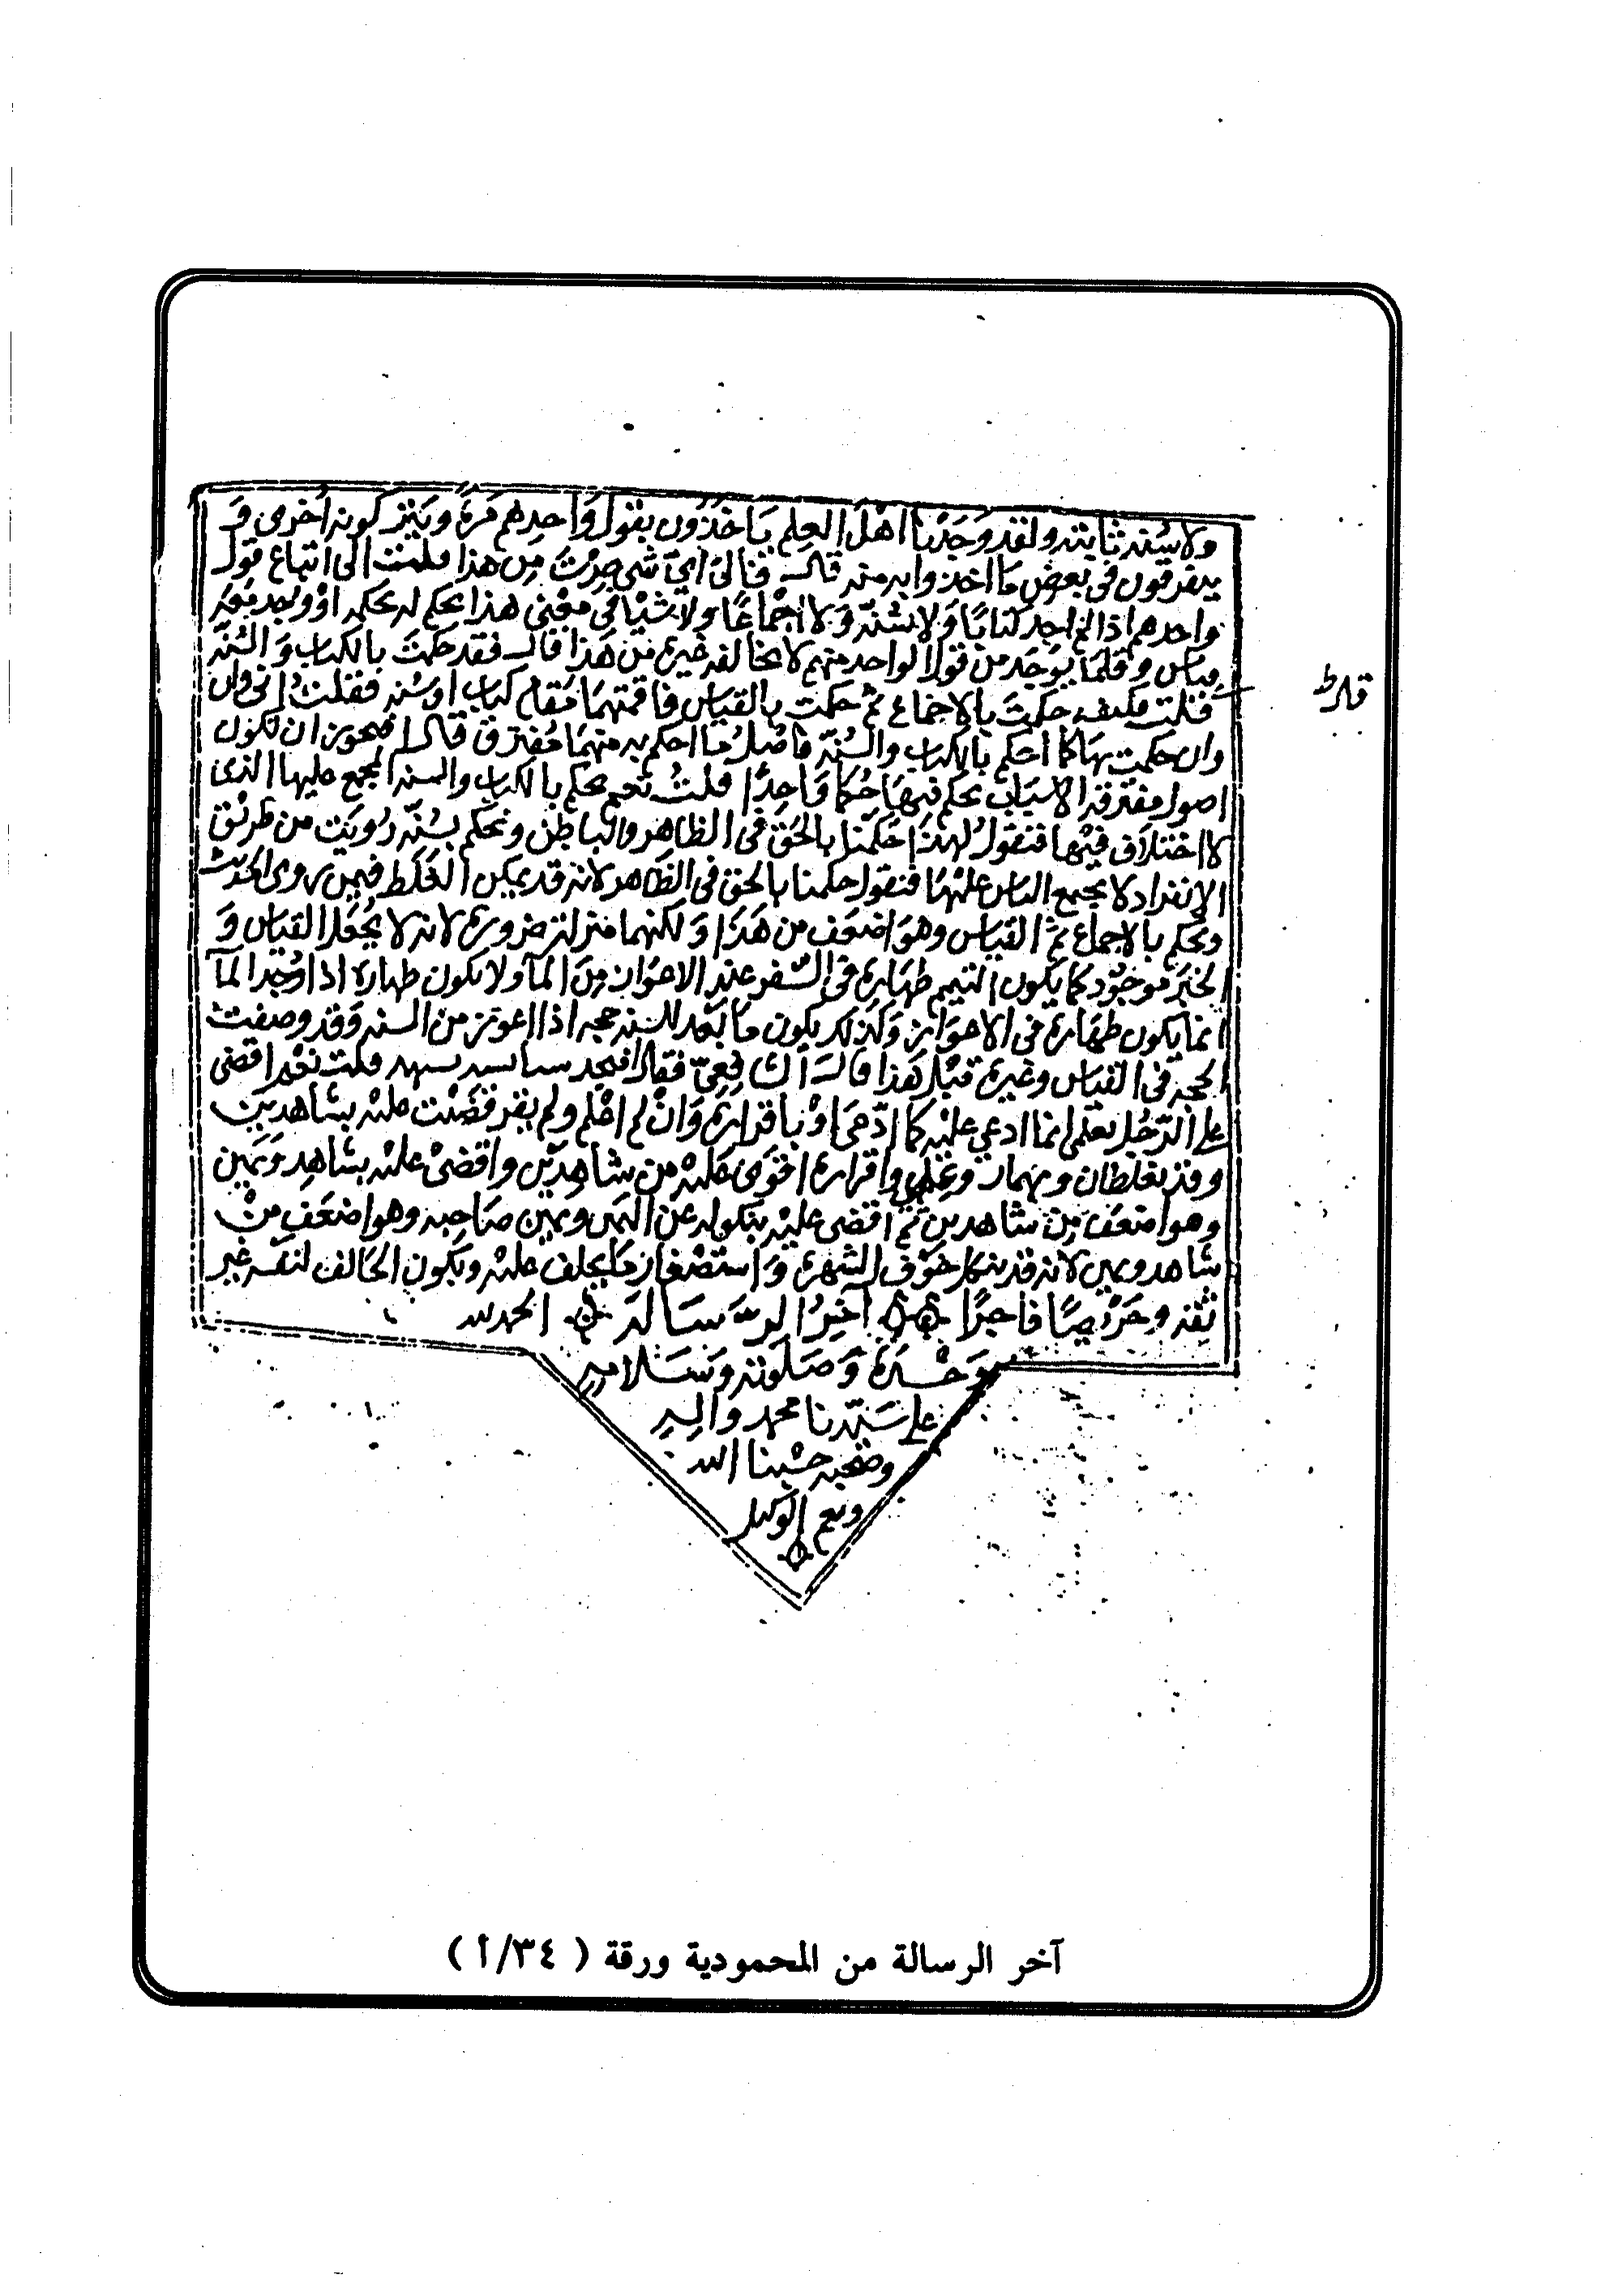 ولا سُنه ثابته ولقد وَجَدْنا اهْلَ العِلم يَاخذُون بقولِ وَاحِدِهم مَرةً ويَتركونه اُخرى وَ
يتفرقون فى بعض مَا اخذوا به منه قال فالى اىّ شى صِرْتَ مِن هذا قلتُ الى اتباع قول
واحدهم اذا لم اجد كتابًا وَلا سُنّة وَلا اجْماعًا ولا شيْا فى معْنى هذا يحكم له بحكمه اوْ وجد مَعَهُ
قياس وقلمَا يوجَد من قول الواحد منهم لا يخالفه غيره من هَذا قال فقد حكمتَ بالكتاب وَالسُنّه
قلت فكيف حكمتَ بالاجماع ثم حكمت بالقياس فاقمتهمَا مَقام كتاب اوسُنه فقلتُ انى وان
وان حكمت بهَا كما احكم بالكتاب والسُنّه فاصْلُ مَا احكم به منهمَا مُفترق قال افيجوز ان تكون
اصول مفترقه الاسبَاب يحكم فيهَا حُكما وَاحِدًا قلتُ نعم يحكم بالكتاب والسنه المجمع عليها الذى
لا اختلاف فيْها فنقولُ لهذَا حَكمْنا بالحَق فى الظاهر والباطن ونحكم بسُنّه رُويَت من طريْق
الانفراد لا يجمع الناس عليْهَا فنقول حكمنا بالحق فى الظاهر لانه قد يمكن الغَلَط فيمن روى الحديث
ونحكم بالاجماع ثم القيَاس وهوَ اضعَف من هَذَا وَلكنهما منزلة ضرورة لانه لا يُحَل القيَاس وَ
الخبَر موجُود كما يكون التيمم طهَارة فى السّفر عند الاعوَاز مِنَ المآ ولا يكون طهارة اذا وُجد المآ
انما يكون طهَارة فى الاعوَاز وَكذلك يكون مَا بَعد السنه حجه اذا اعوز من السنه وَقد وصفت
الحجه فى القيَاس وغيره قبْل هَذا قال الشافِعىّ فقال افتجد قلت نعم اقضى
على الرّجُل بعلمى انما ادعى عليْه كما ادّعىَ اوْ باقرارِه وَانْ لم اعْلم ولم يقر قضَيْت عليْه بشاهديْن
وقد يغلطان ويهمان وعِلمى واقراره اقوَى عليْه من شاهديْن واقضىْ عليْه بشاهِد وَيَمين
وهو اضعَف مِن شاهدين ثم اقضى عليْه بنكوله عن اليمين ويمين صَاحِبه وهو اضعَف مِنْ
شاهد ويمين لانه قد ينكل خوْف الشهرة وَاستصْغار مَا يحلف عليْه ويكون الحَالف لنفسه غير
ثِقه وحَرِيْصًا فاجرًا آخِرُ الرّسَاله الحمد لله
وَحْدَهُ وَصَلوته وسَلامه
على سَيّدنا محمد واله
وصَحْبه حسْبنا الله
ونعم الوكيل
آخر الرسالة من المحمودية ورقة ( ٣٤/أ )